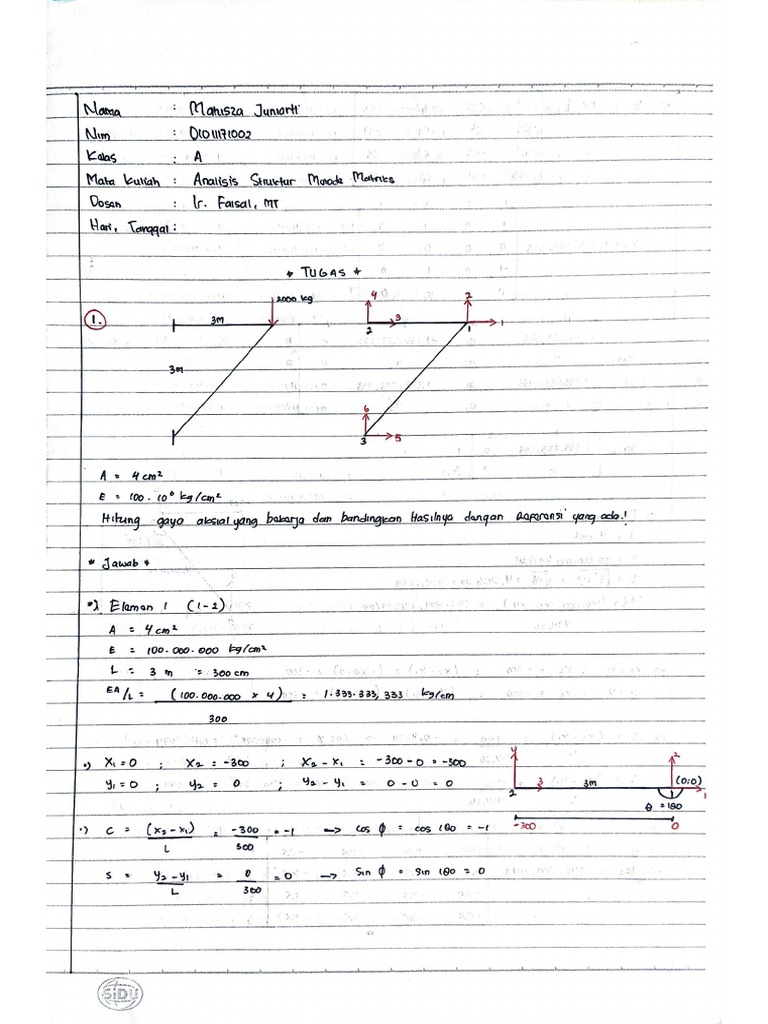 Nama : Marisza Juniarti
Nim : 01011171002
Kelas : A
Mata Kuliah : Analisis Struktur Metode Matriks
Dosen : Ir. Faisal, MT
Hari, Tanggal :
* TUGAS *
1.
2000 kg
3m
3m
4
3
2
2
1
1
6
3
5
A = 4 cm²
E = 100 . 10⁶ kg/cm²
Hitung gaya aksial yang bekerja dan bandingkan Hasilnya dengan Referensi yang ada!
* Jawab *
•) Elemen 1 (1-2)
A = 4 cm²
E = 100.000.000 kg/cm²
L = 3 m = 300 cm
EA/L = (100.000.000 x 4) / 300 = 1.333.333,333 kg/cm
•) X₁ = 0 ; X₂ = -300 ; X₂ - X₁ = -300 - 0 = -300
y₁ = 0 ; y₂ = 0 ; y₂ - y₁ = 0 - 0 = 0
4
3
2
3m
2
1
1
(0;0)
θ = 180
-300
0
•) C = (x₂ - x₁) / L = -300 / 300 = -1 → cos φ = cos 180 = -1
S = y₂ - y₁ / L = 0 / 300 = 0 → sin φ = sin 180 = 0
SiDU